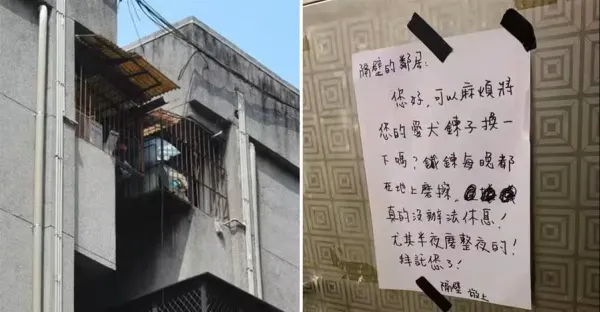 隔壁的鄰居：
您好，可以麻煩將
您的愛犬鍊子換一
下嗎？鐵鍊每晚都
在地上磨擦，
真的沒辦法休息！
尤其半夜磨整夜的！
拜託您了！
隔壁 敬上